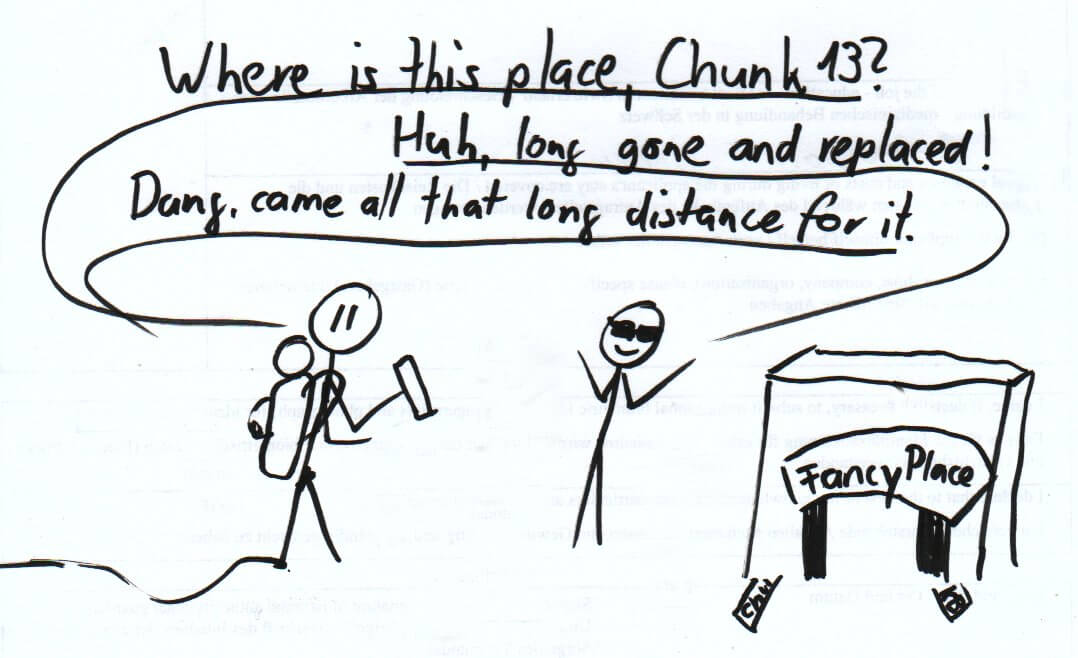 Where is this place, Chunk 13?
Huh, long gone and replaced!
Dang, came all that long distance for it.
Fancy Place
Chun
13